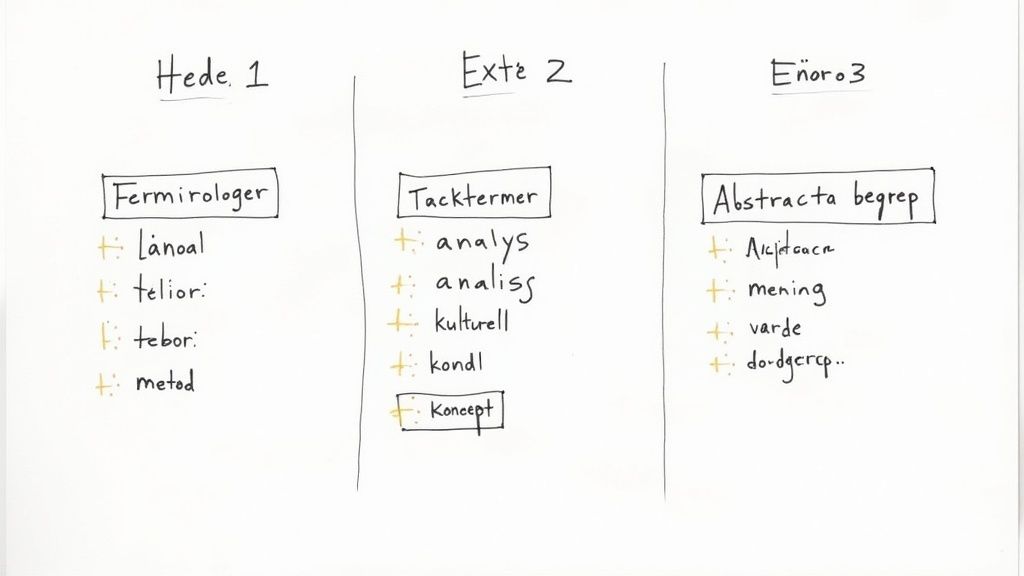 Hede. 1
Fermirologer
Lånoal
telior:
tebor:
metod
Exte 2
Tacktermer
analys
analisg
kulturell
kondl
Koncept
Enoro3
Abstracta begrep
mening
varde